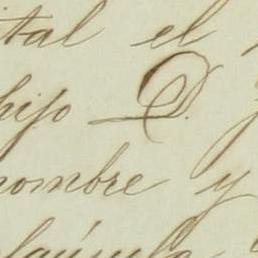 ital el
hijo D.
nombre y